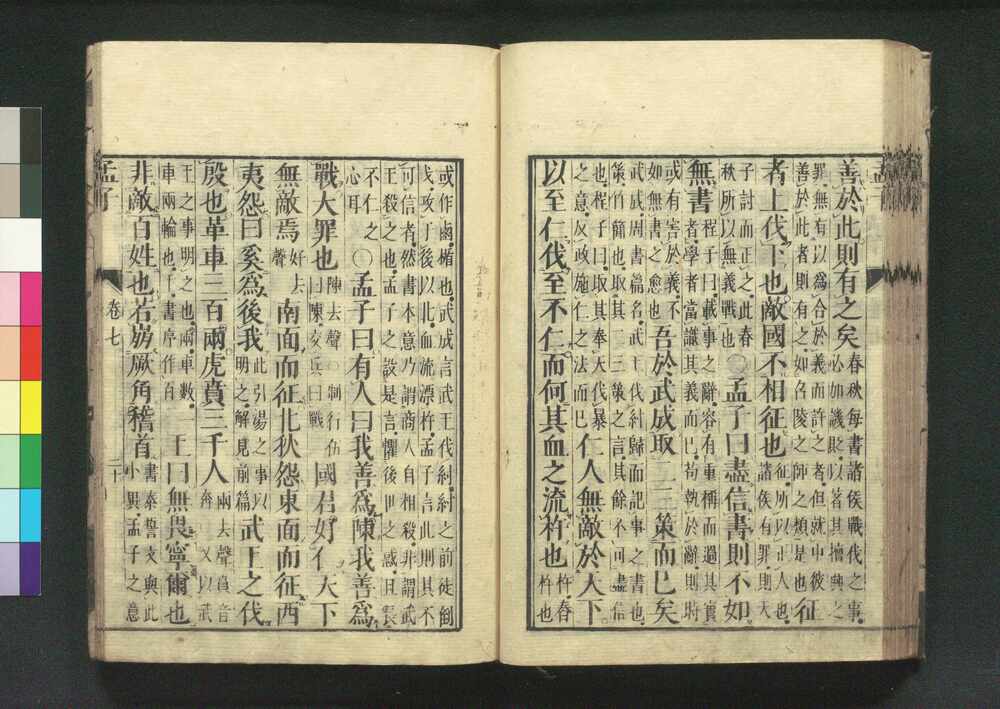 善於此則有之矣
春秋每書諸侯戰伐之事
必如譏貶以著其擅興之
罪無有以爲合於義而許之者但就中彼
善於此者則有之如召陵之師之類是也
征
者上伐下也敵國不相征也
征所以正人也
諸侯有罪則天
子討而正之此春
秋所以無義戰也
○孟子曰盡信書則不如
無書
程子曰載事之辭容有重稱而過其實
者學者當識其義而已苟執於辭則時
或有害於義不
如無書之愈也
吾於武成取二三策而已矣
武成周書篇名武王伐紂歸而記事之書也
策竹簡也取其二三策之言其餘不可盡信
也程子曰取其奉天伐暴
之意反政施仁之法而已
仁人無敵於天下
以至仁伐至不仁而何其血之流杵也
杵舂
杵也
或作鹵楯也武成言武王伐紂紂之前徒倒
戈攻于後以北血流漂杵孟子言此則其不
可信者然書本意乃謂商人自相殺非謂武
王殺之也孟子之設是言懼後世之惑且長
不仁之
心耳
○孟子曰有人曰我善爲陳我善爲
戰大罪也
陳去聲○制行伍
曰陳交兵曰戰
國君好仁天下
無敵焉
好去
聲
南面而征北狄怨東面而征西
夷怨曰奚爲後我
此引湯之事以
明之解見前篇
武王之伐
殷也革車三百兩虎賁三千人
兩去聲賁音
奔○又以武
王之事明之也兩車數一
車兩輪也千書序作百
王曰無畏寧爾也
非敵百姓也若崩厥角稽首
書泰誓文與此
小異孟子之意
孟子
卷七
二十